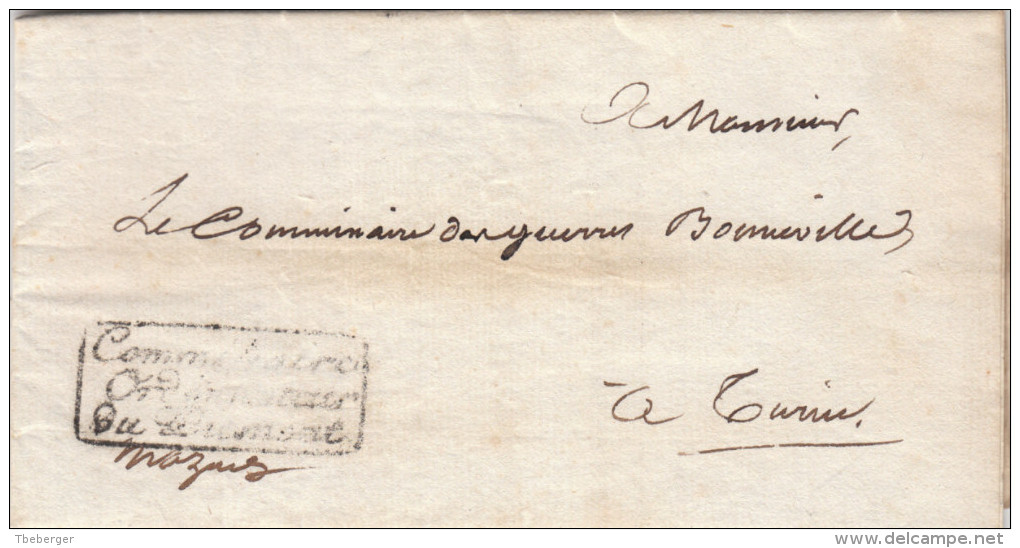 A Monsieur,
Le Commissaire des guerres Bonneville
a Turin.
Commissaire
Ordonnateur
Du Piemont
Mazade
Tbeberger
delcampe.net